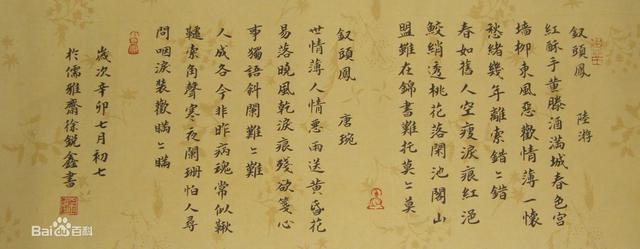 釵頭鳳 陸游
紅酥手黄滕酒滿城春色宮
墻柳東風惡歡情薄一懷
愁緒幾年離索錯〻錯
春如舊人空瘦淚痕紅浥
鮫綃透桃花落閑池閣山
盟雖在錦書難托莫〻莫
釵頭鳳 唐琬
世情薄人情惡雨送黄昏花
易落曉風乾淚痕殘欲箋心
事獨語斜闌難〻難
人成各今非昨病魂常似鞦
韆索角聲寒夜闌珊怕人尋
問咽淚裝歡瞞〻瞞
歲次辛卯七月初七
於儒雅齋徐銳鑫書
Bai百科